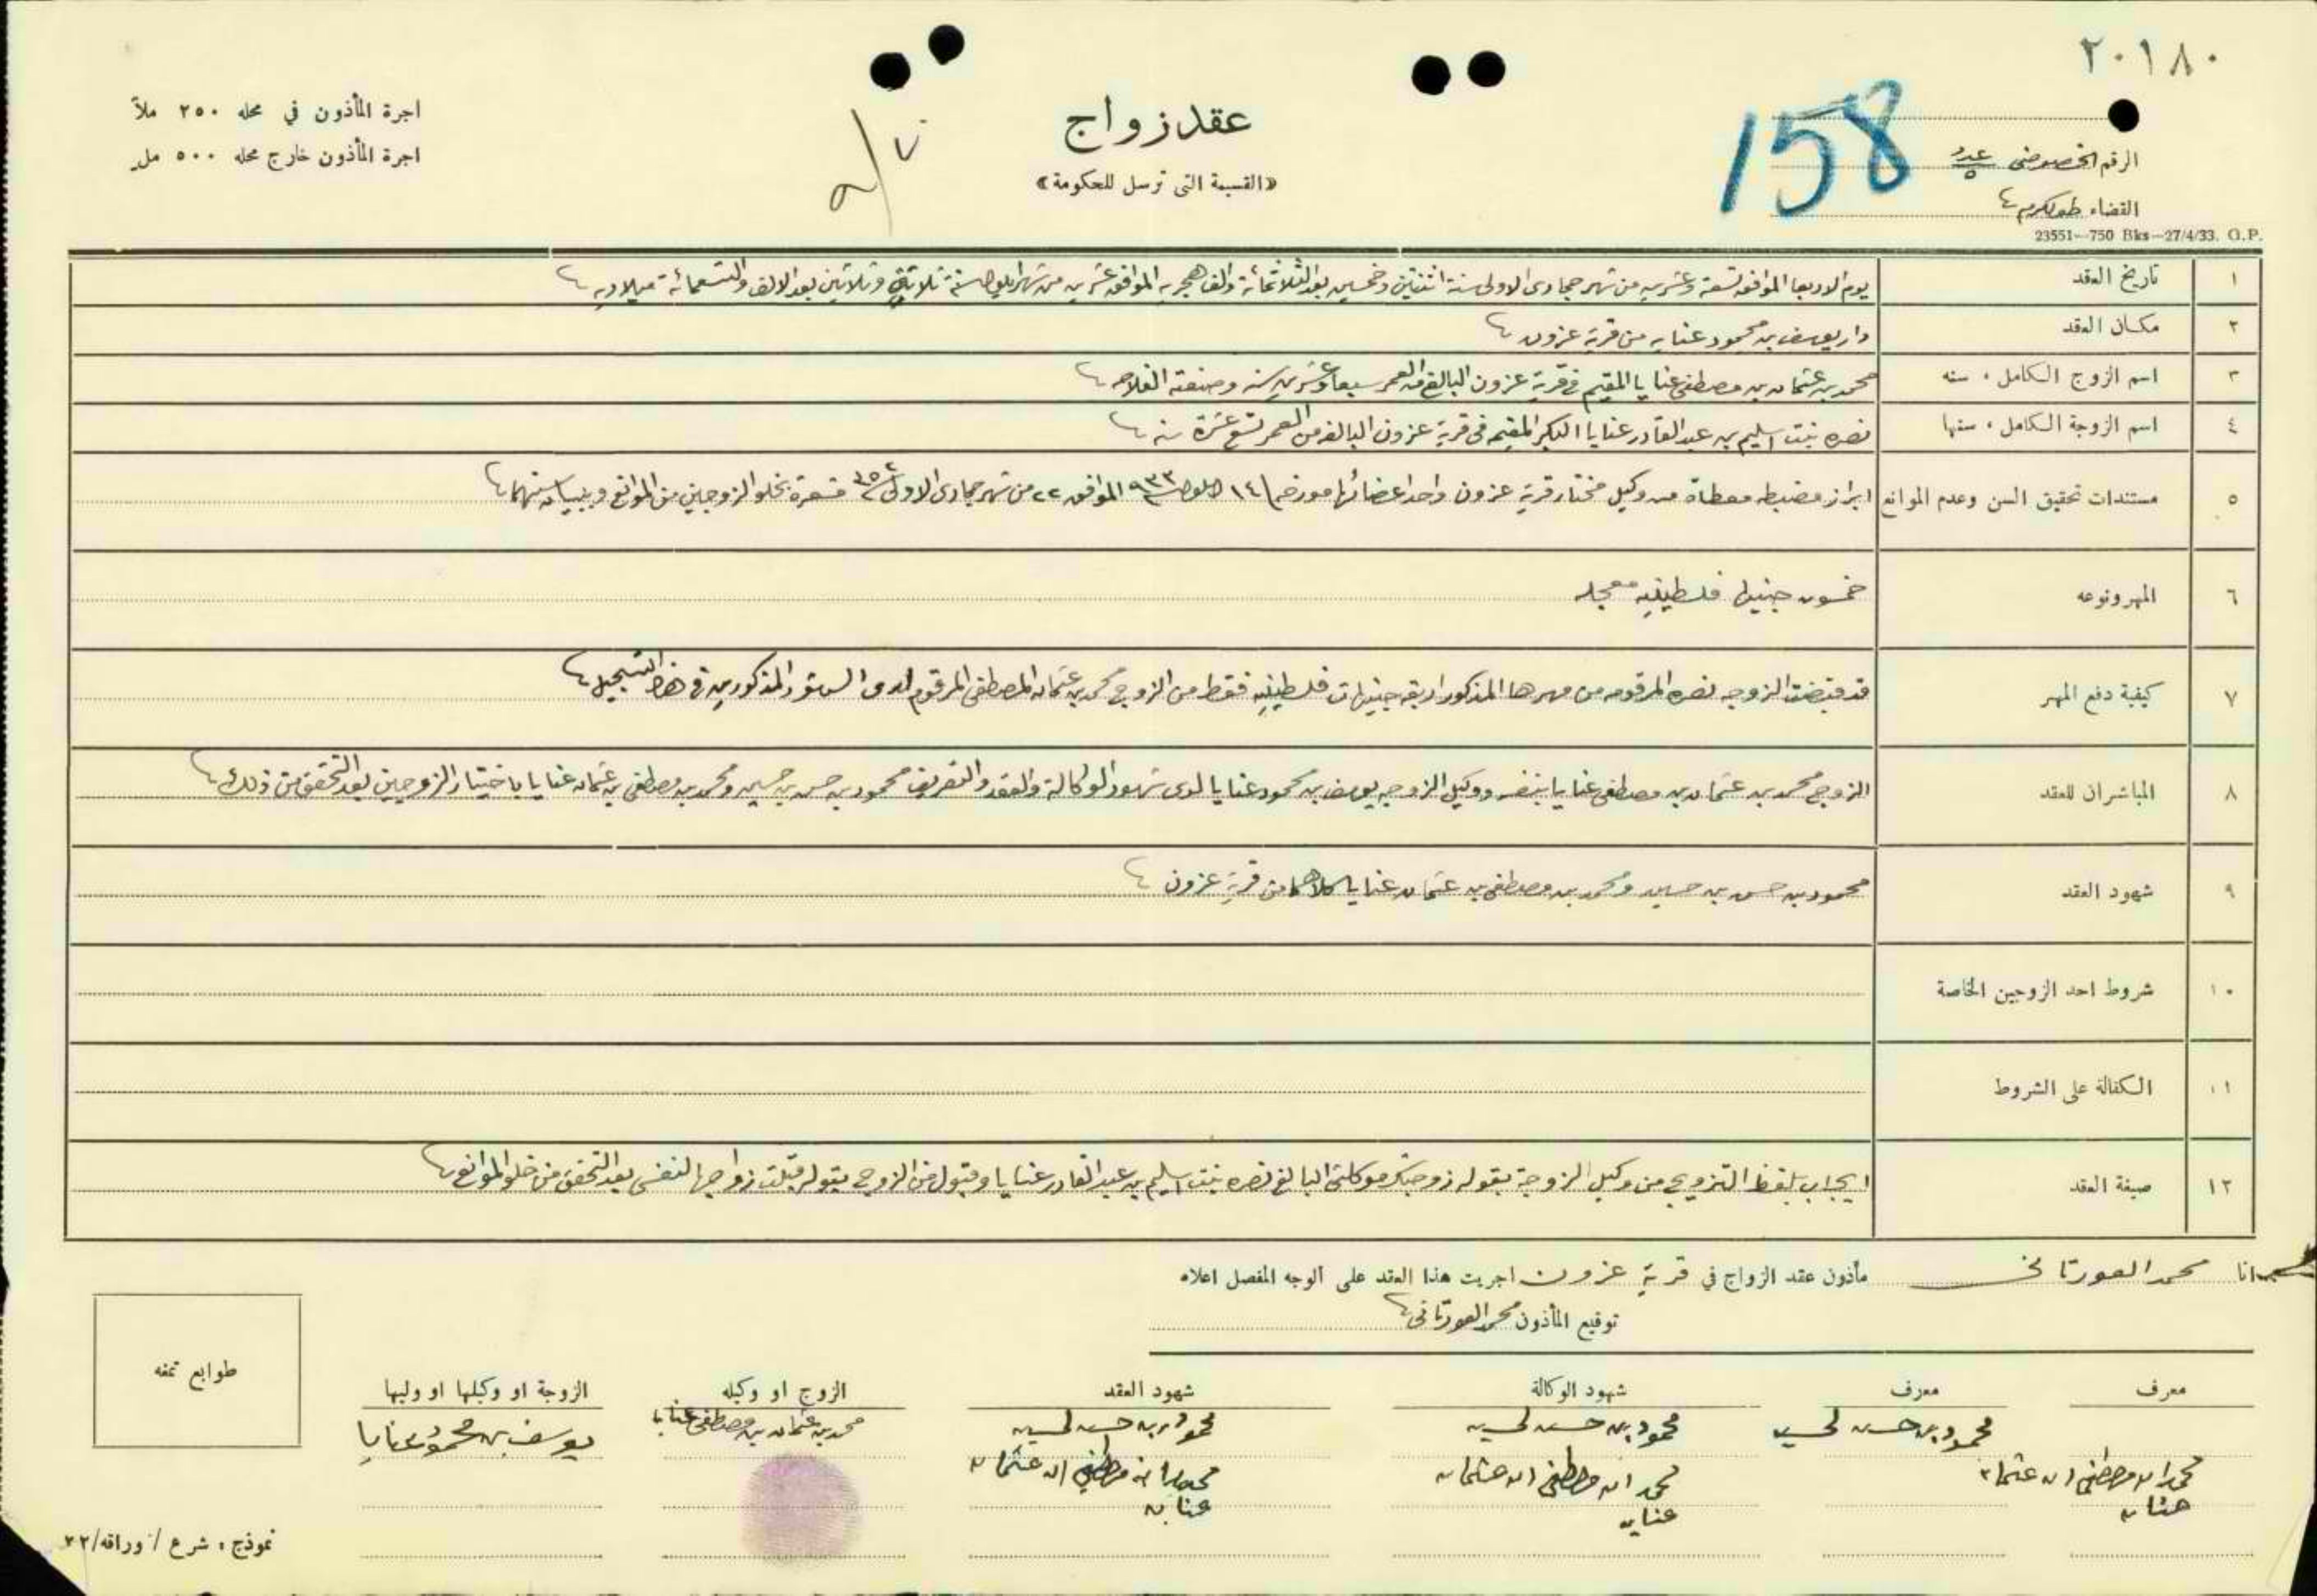 ٢٠١٨٠
158
الرقم الخصوصي عدد ٥
القضاء طولكرم
23551—750 Bks—27/4/33. G.P.
عقد زواج
«القسيمة التي ترسل للحكومة»
٧/٥
اجرة المأذون في محله ٢٥٠ ملاً
اجرة المأذون خارج محله ٥٠٠ مل
١ تاريخ العقد يوم الاربعا الموافق تسعة وعشرين من شهر جمادى الاولى سنة اثنتين وخمسين بعد الثلاثمائة والف هجريه الموافق عشرين من شهر ايلول سنة ثلاثة وثلاثين بعد الالف والتسعمائة ميلاديه
٢ مكان العقد دار يوسف بن محمود عنايه من قرية عزون
٣ اسم الزوج الكامل ، سنه محمد بن عثمان بن مصطفى عنايا المقيم في قرية عزون البالغ من العمر سبعا وعشرين سنه وصنعته الفلاحه
٤ اسم الزوجة الكامل ، سنها نصره بنت اسليم بن عبد القادر عنايا البكر المقيمه في قرية عزون البالغه من العمر تسع عشرة سنه
٥ مستندات تحقيق السن وعدم الموانع ابراز مضبطه معطاة من وكيل مختار قرية عزون واحد اعضائها مورخه ١٤ ايلول سنة ٩٣٣ الموافق ٢٤ من شهر جمادى الاولى سنة ٣٥٢ مشعرة بخلو الزوجين من الموانع وببيان سنهما
٦ المهر ونوعه خمسون جنيها فلسطينيه معجله
٧ كيفية دفع المهر قد قبضت الزوجه نصره المرقومه من مهرها المذكور اربعة جنيهات فلسطينيه فقط من الزوج محمد بن عثمان المصطفى المرقوم لدى الشهود المذكورين في هذا التسجيل
٨ المباشران للعقد الزوج محمد بن عثمان بن مصطفى عنايا بنفسه ووكيل الزوجه يوسف بن محمود عنايا لدى شهود الوكالة والعقد والتعريف محمود بن حسن بن حسين ومحمد بن مصطفى بن عثمان عنايا باختيار الزوجين بعد التحقق من ذلك
٩ شهود العقد محمود بن حسن بن حسين ومحمد بن مصطفى بن عثمان عنايا كلاهما من قرية عزون
١٠ شروط احد الزوجين الخاصة
١١ الكفالة على الشروط
١٢ صيغة العقد ايجاب بلفظ التزويج من وكيل الزوجة بقوله زوجتك موكلتي البالغ نصره بنت اسليم بن عبد القادر عنايا وقبول من الزوج بقوله قبلت زواجها لنفسي بعد التحقق من خلو الموانع
انا محمد العورتاني مأذون عقد الزواج في قرية عزون اجريت هذا العقد على الوجه المفصل اعلاه
توقيع المأذون محمد العورتاني
معرف
محمد ابن مصطفى ابن عثمان
عنايه
معرف
محمود بن حسن لحسين
شهود الوكالة
محمود بن حسن لحسين
محمد ابن مصطفى ابن عثمان
عنايه
شهود العقد
محمود بن حسن لحسين
محمد ابن مصطفى ابن عثمان
عنايه
الزوج او وكيله
محمد بن عثمان بن مصطفى عنايا
الزوجة او وكيلها او وليها
يوسف بن محمود عنايا
طوابع تمغه
نموذج ، شرع / وراقه/٢٢